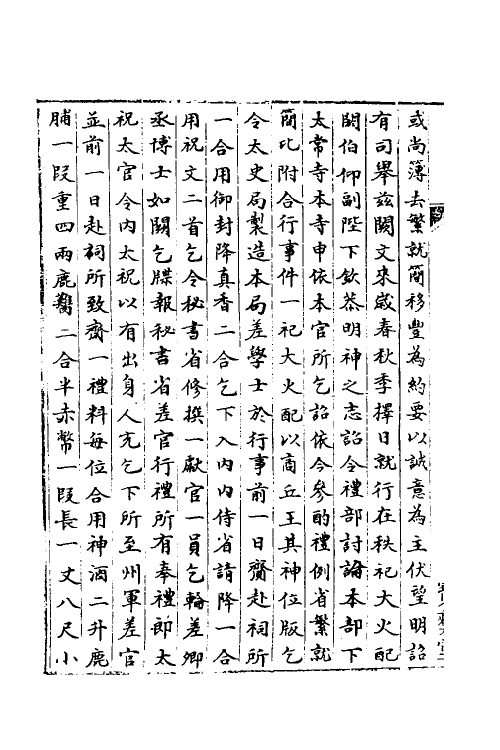 或尚簿去繁就簡移豐為約要以誠意為主伏望明詔
有司舉兹闕文來歲春秋季擇日就行在秩祀大火配
閼伯仰副陛下欽恭明神之志詔令禮部討論本部下
太常寺本寺申依本官所乞詔依今參酌禮例省繁就
簡比附合行事件一祀大火配以商丘王其神位版乞
令太史局製造本局差學士於行事前一日齎赴祠所
一合用御封降真香二合乞下入内内侍省請降一合
用祝文二首乞令秘書省修撰一獻官一員乞輪差卿
丞博士如闕乞牒報秘書省差官行禮所有奉禮郎太
祝太官令内太祝以有出身人充乞下所至州軍差官
並前一日赴祠所致齋一禮料每位合用神酒二升鹿
脯一段重四兩鹿臡二合半赤幣一段長一丈八尺小